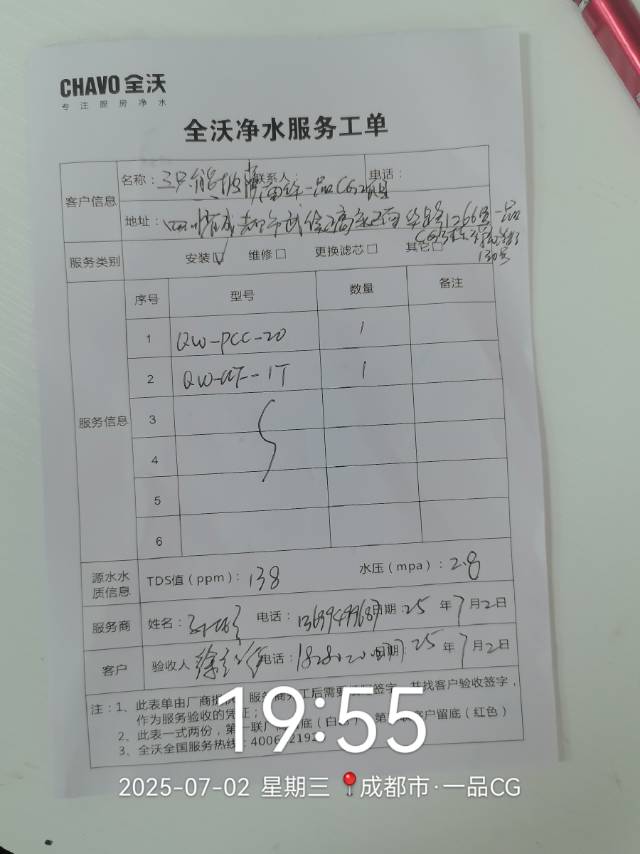 CHAVO 全沃
专 注 厨 房 净 水
全沃净水服务工单
客户信息 名称: 联系人: 一品CG 电话:
地址: 四川省成都市武侯区 1266号一品
130号
服务类别 安装☑ 维修□ 更换滤芯□ 其它□
服务信息 序号 型号 数量 备注
1 QW-PCC-20 1
2 QW-UF-1T 1
3
4
5
6
源水水质信息 TDS值(ppm): 138 水压(mpa): 2.8
服务商 姓名: 电话: 日期: 25 年 7 月 2 日
客户 验收人 徐 电话: 日期: 25 年 7 月 2 日
注: 1、此表单由厂商提供,服务商 工后需要 签字,并找客户验收签字,
作为服务验收的凭证;
2、此表一式两份,第一联厂 底(白 ),第 客户留底(红色)
3、全沃全国服务热线: 400
19:55
2025-07-02 星期三 📍成都市·一品CG